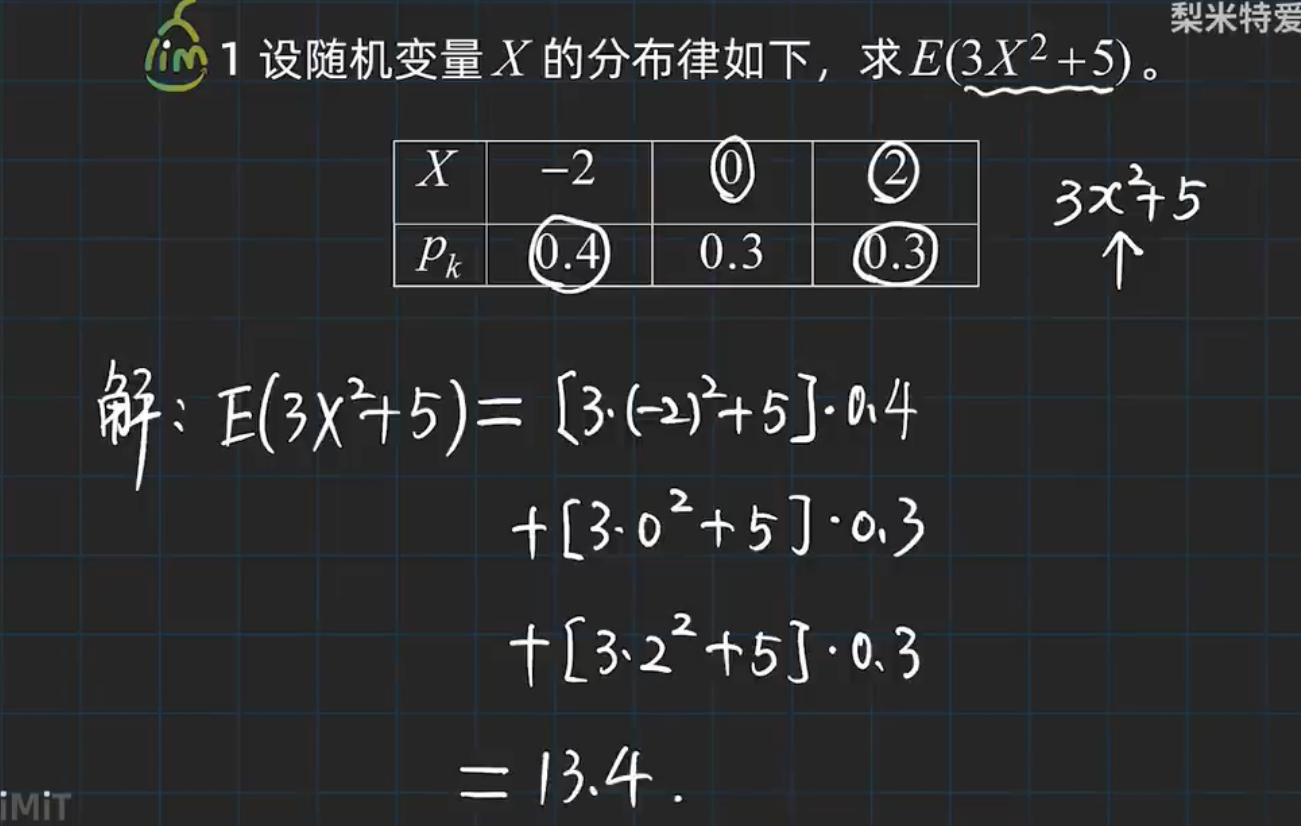 梨米特爱
lim 1 设随机变量 X 的分布律如下，求E(3X²+5)。
X −2 0 2
pₖ 0.4 0.3 0.3
3x²+5
↑
解：E(3X²+5)= [3·(-2)²+5]·0.4
+[3·0²+5]·0.3
+[3·2²+5]·0.3
= 13.4.
iMiT